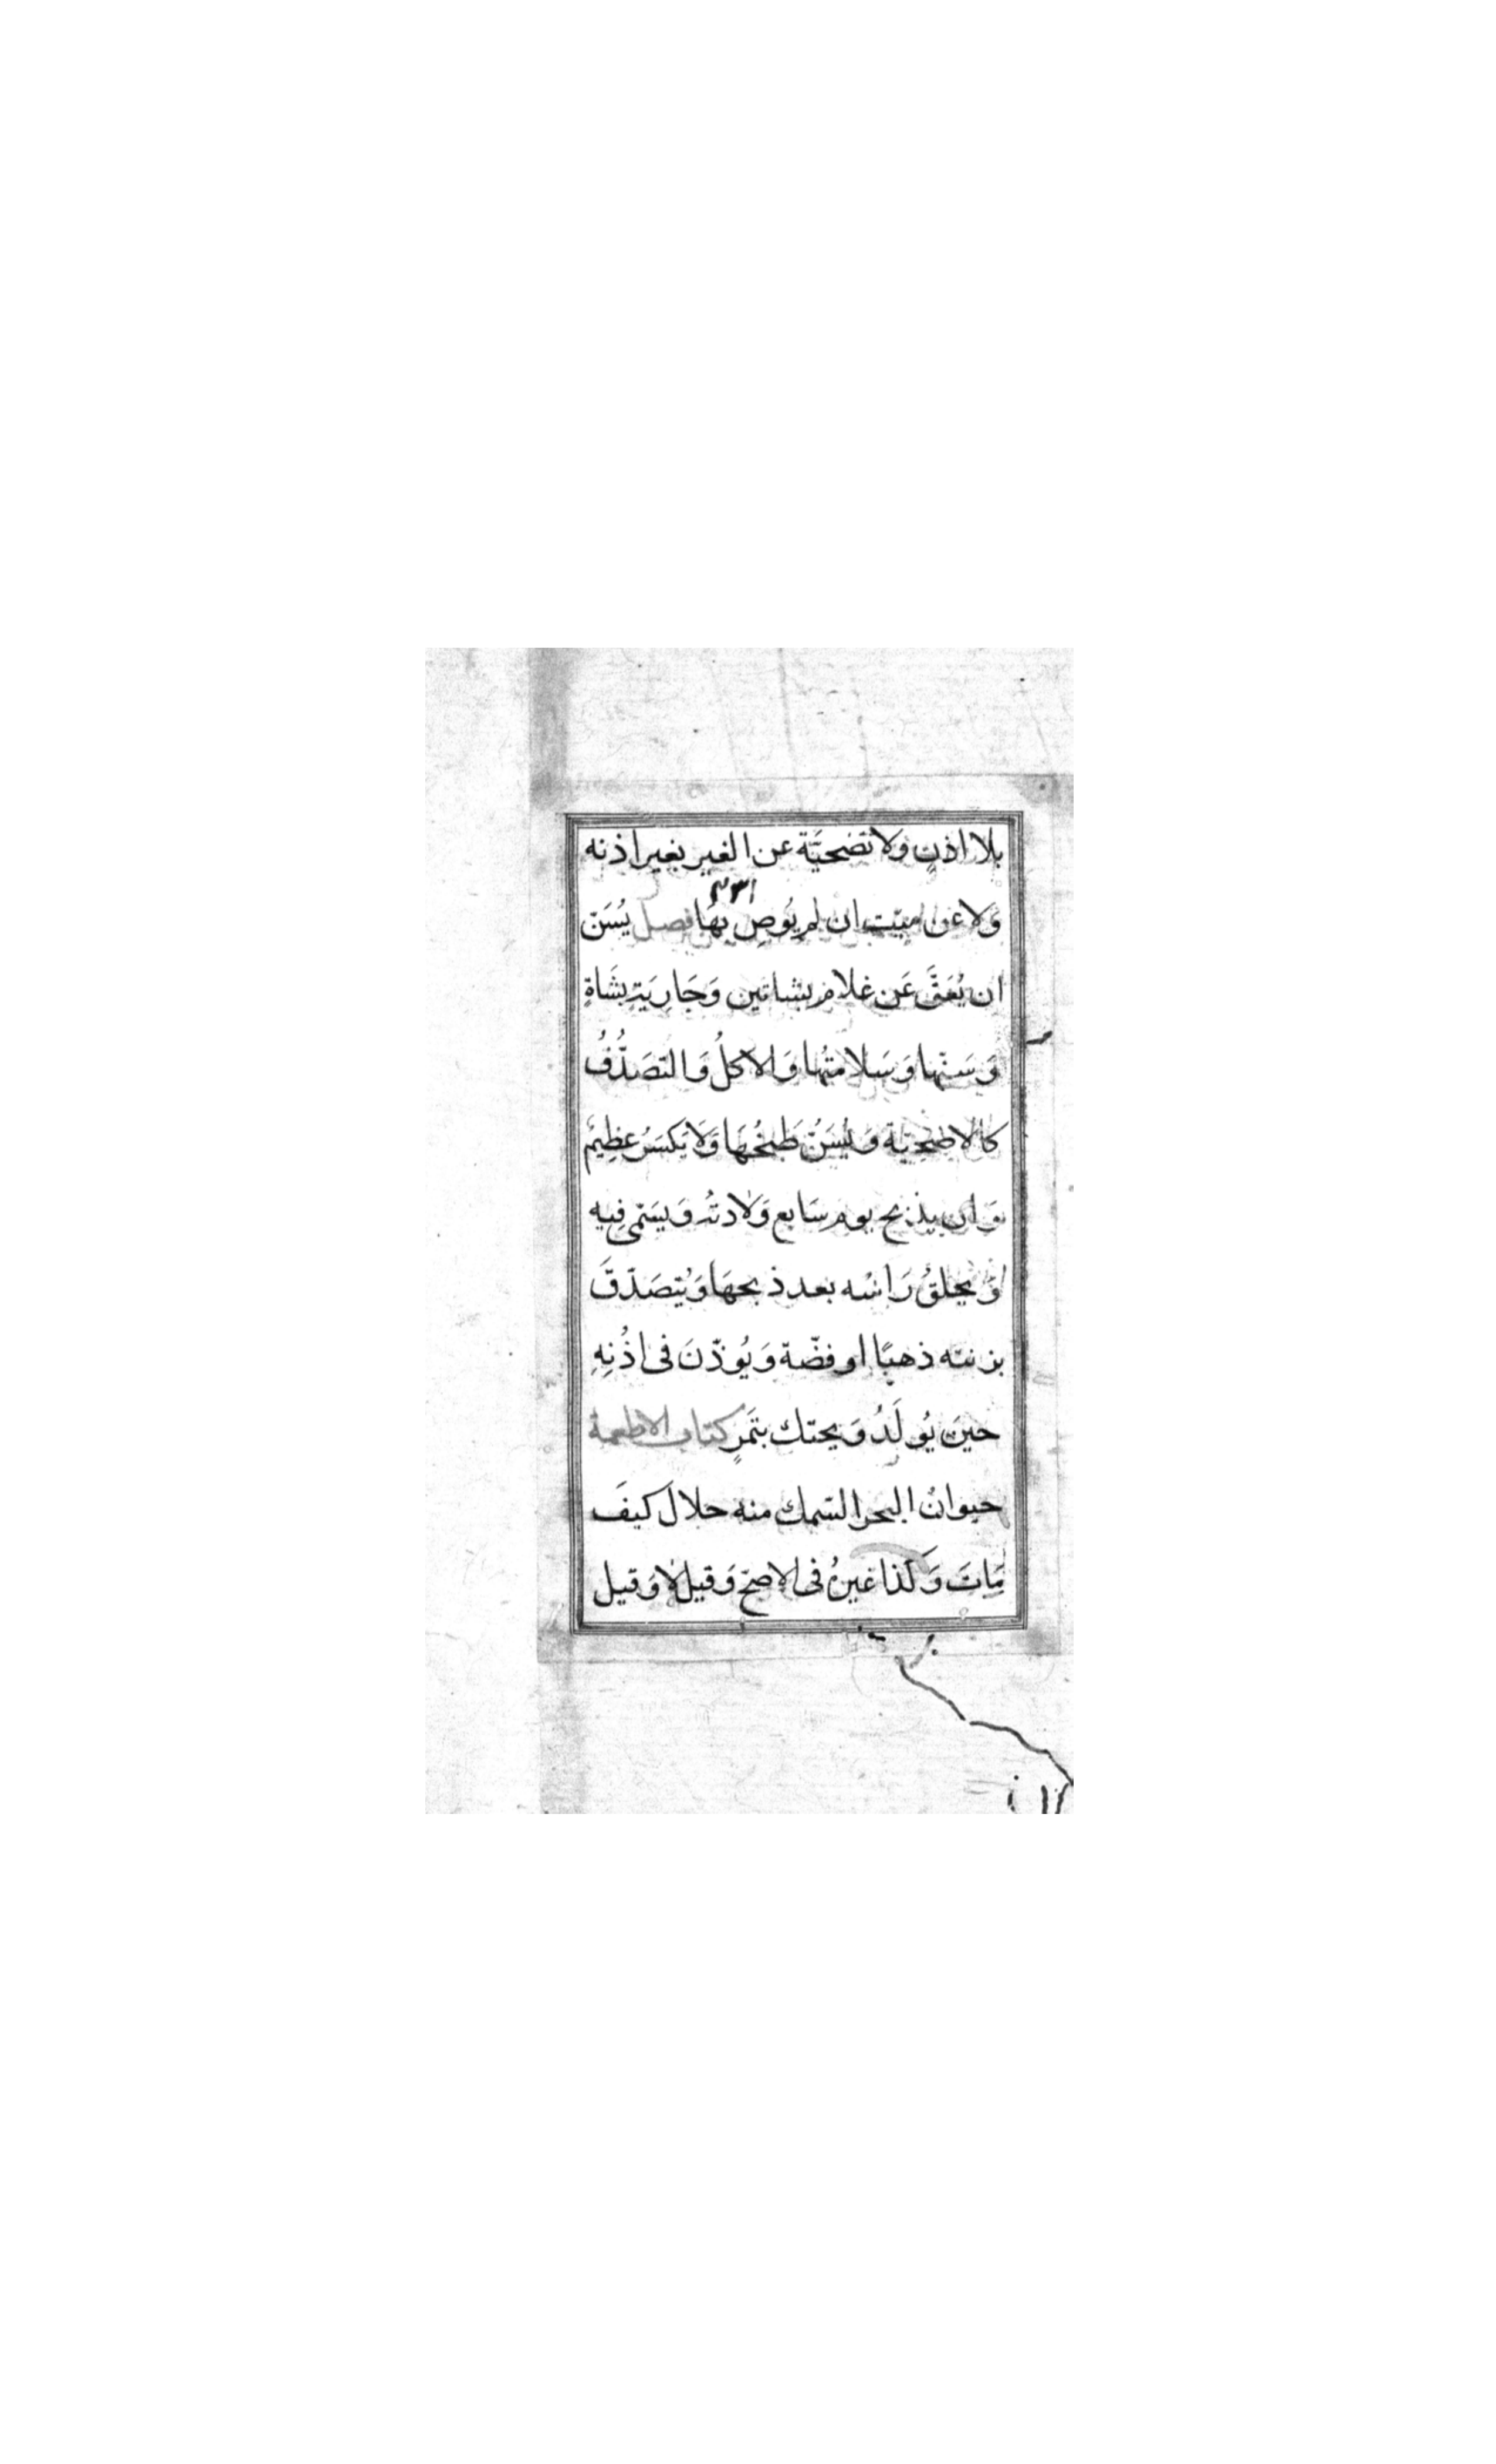 بلا اذنٍ ولا تضحيَّة عن الغير بغير اذنه
وَلا عن ميّت ان لم يُوصِ بهَا فصل يُسَنّ
ان يُعَقَّ عَن غلام بشاتين وَجَاريَةٍ بشَاةٍ
وَسَنّها وَسَلامتُها وَالاكلُ وَالتّصَدُّقُ
كالاضحِيّة وَيُسَنُّ طَبخُهَا وَلَا يَكسَرُ عظِيمٌ
وَان يذبح يوم سَابع وَلادتُه وَيسَمّى فِيه
وَيحلقُ رَاسُه بعد ذبحهَا وَيُتصَدّقَ
بزنته ذهبًا او فضّة وَيُوذّنَ فى اذُنِهِ
حين يُولَدُ وَيحتك بتَمرٍ كتاب الاطعمة
حيوان البحر السّمك منه حلالَ كيفَ
مَاتَ وَكَذا غيرُه فى الاصحّ وَقيل لا وَقيل